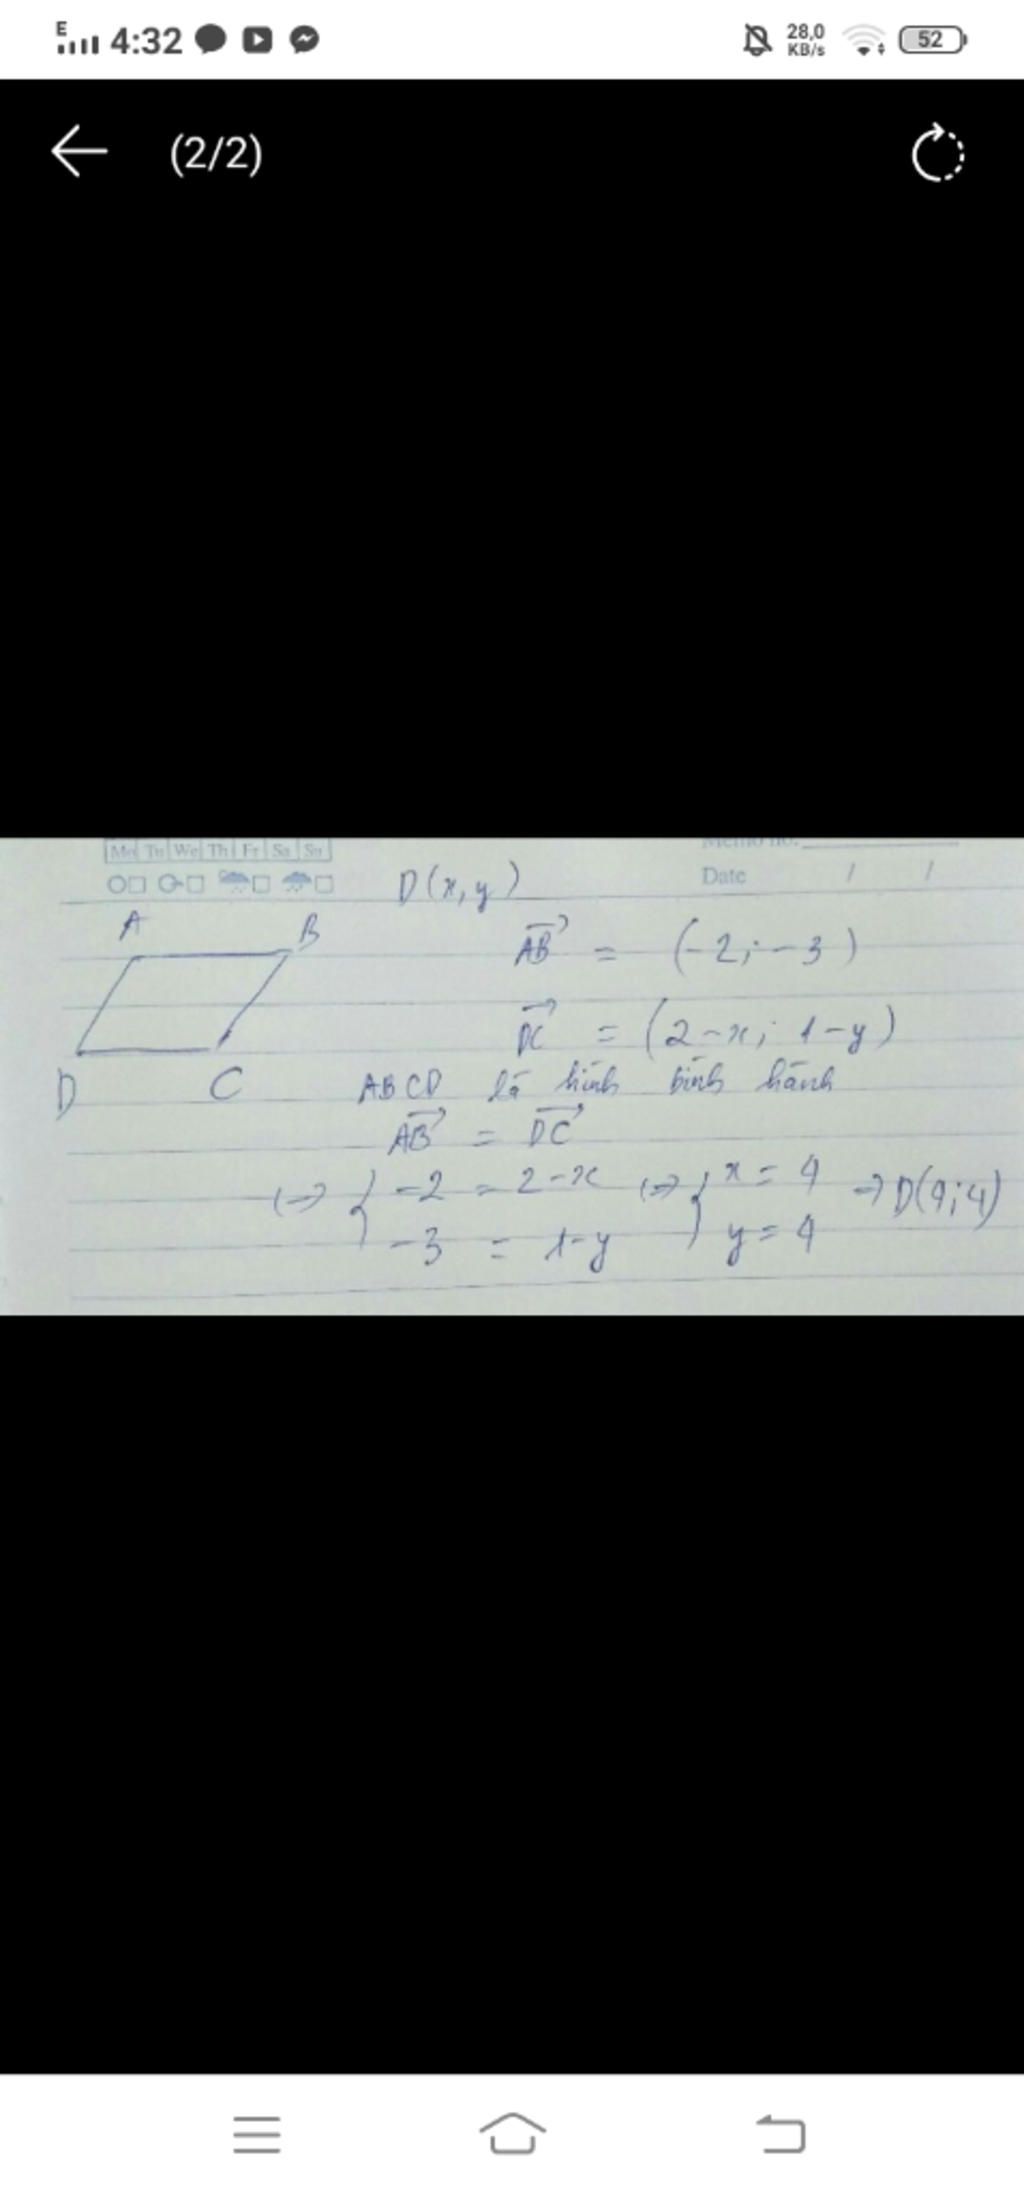 E 4:32 28,0 KB/s 52
(2/2)
Mo Tu We Th Fr Sa Su
Memo no.
Date / /
D(x,y)
A B
AB = (-2;-3)
DC = (2-x; 1-y)
D C
ABCD là hình bình hành
AB = DC
(=> { -2 = 2-x (=> { x = 4 => D(4;4)
-3 = 1-y y = 4